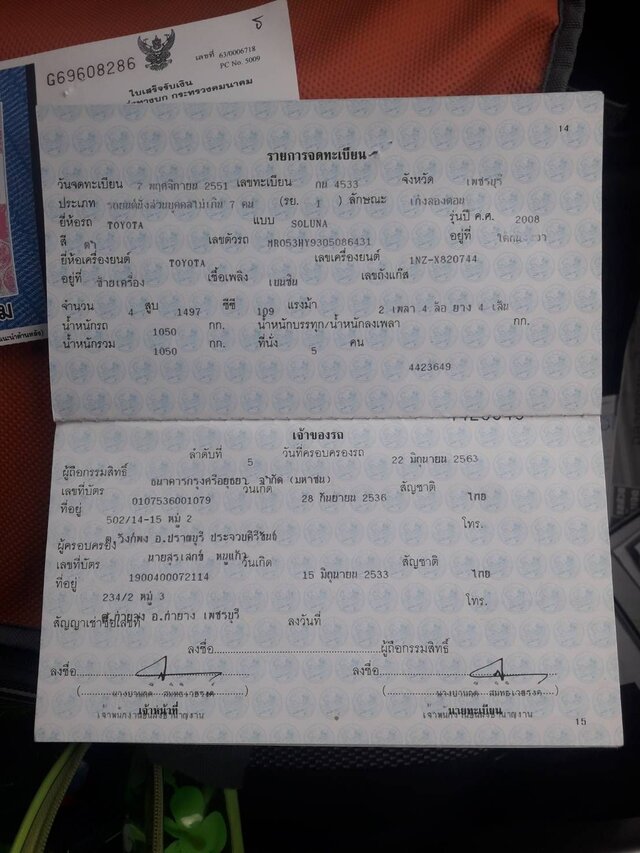 G69608286
เลขที่ 63/0006718
PC No. 5009
ใบเสร็จรับเงิน
กระทรวงคมนาคม
14
รายการจดทะเบียน
วันจดทะเบียน 7 พฤศจิกายน 2551 เลขทะเบียน กน 4533 จังหวัด เพชรบุรี
ประเภท รถยนต์นั่งส่วนบุคคลไม่เกิน 7 คน (รย. 1 ) ลักษณะ เก๋งสองตอน
ยี่ห้อรถ TOYOTA แบบ SOLUNA รุ่นปี ค.ศ. 2008
สี ดำ เลขตัวรถ MR053HY9305086431 อยู่ที่
ยี่ห้อเครื่องยนต์ TOYOTA เลขเครื่องยนต์ 1NZ-X820744
อยู่ที่ ซ้ายเครื่อง เชื้อเพลิง เบนซิน เลขถังแก๊ส
จำนวน 4 สูบ 1497 ซีซี 109 แรงม้า 2 เพลา 4 ล้อ ยาง 4 เส้น
น้ำหนักรถ 1050 กก. น้ำหนักบรรทุก/น้ำหนักลงเพลา กก.
น้ำหนักรวม 1050 กก. ที่นั่ง 5 คน
4423649
เจ้าของรถ
ลำดับที่ 5 วันที่ครอบครองรถ 22 มิถุนายน 2563
ผู้ถือกรรมสิทธิ์ ธนาคารกรุงศรีอยุธยา จำกัด (มหาชน)
เลขที่บัตร 0107536001079 วันเกิด 28 กันยายน 2536 สัญชาติ ไทย
ที่อยู่ 502/14-15 หมู่ 2 โทร.
ต.วังก์พง อ.ปราณบุรี ประจวบคีรีขันธ์
ผู้ครอบครอง นายสุรเสกข์ หนูแก้ว
เลขที่บัตร 1900400072114 วันเกิด 15 มิถุนายน 2533 สัญชาติ ไทย
ที่อยู่ 234/2 หมู่ 3 โทร.
ต.ท่ายาง อ.ท่ายาง เพชรบุรี
สัญญาเช่าซื้อเลขที่ ลงวันที่
ลงชื่อ ผู้ถือกรรมสิทธิ์
ลงชื่อ ลงชื่อ
เจ้าหน้าที่ นายทะเบียน
เจ้าพนักงานขนส่งชำนาญงาน เจ้าพนักงานขนส่งชำนาญงาน
15